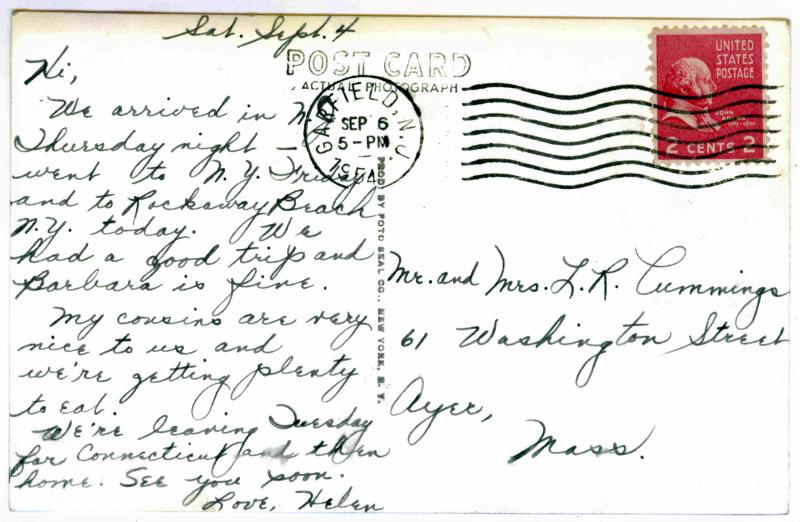 Sat. Sept. 4
POST CARD
ACTUAL PHOTOGRAPH
Hi,
We arrived in N.J.
Thursday night –
went to N.Y. Friday
and to Rockaway Beach
N.Y. today. We
had a good trip and
Barbara is fine.
My cousins are very
nice to us and
we're getting plenty
to eat.
We're leaving Tuesday
for Connecticut and then
home. See you soon.
Love, Helen
GARFIELD, N.J.
SEP 6
5-PM
1954
UNITED
STATES
POSTAGE
JOHN
ADAMS
2 CENTS 2
PROD. BY FOTO SEAL CO., NEW YORK, N. Y.
Mr. and Mrs. L. R. Cummings
61 Washington Street
Ayer,
Mass.